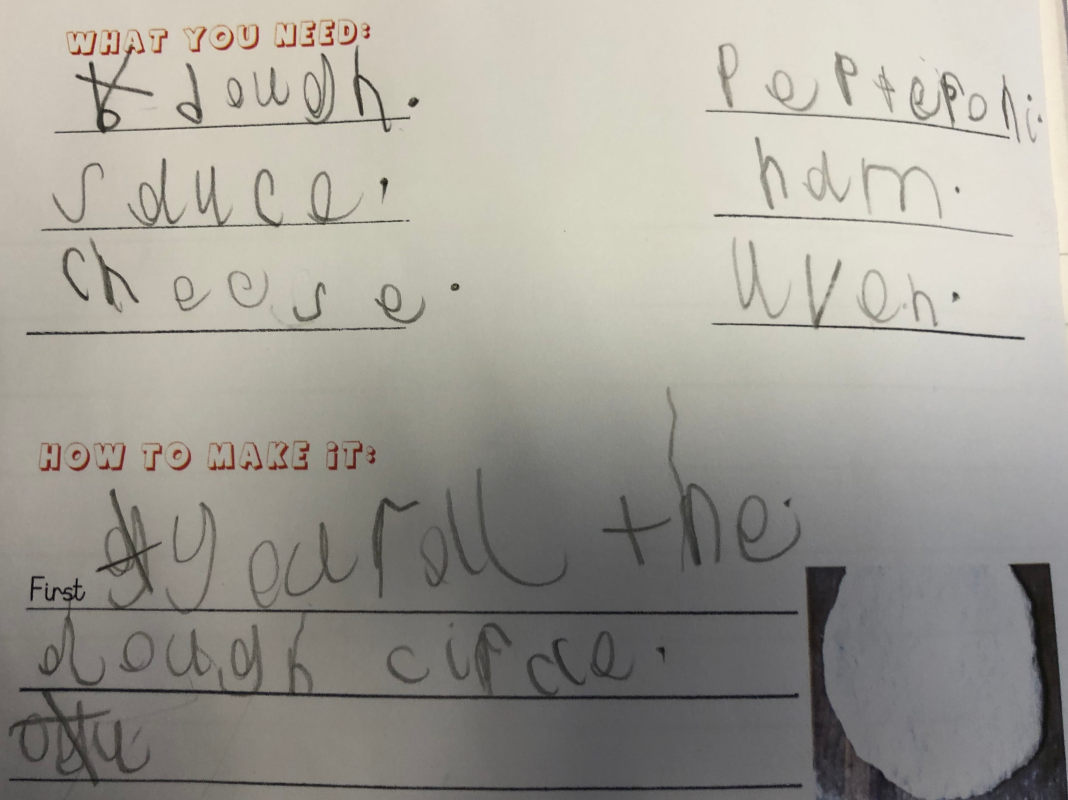 WHAT YOU NEED:
dough.
sauce.
cheese.
ham.
uven.
HOW TO MAKE iT:
First you roll the
dough circle.